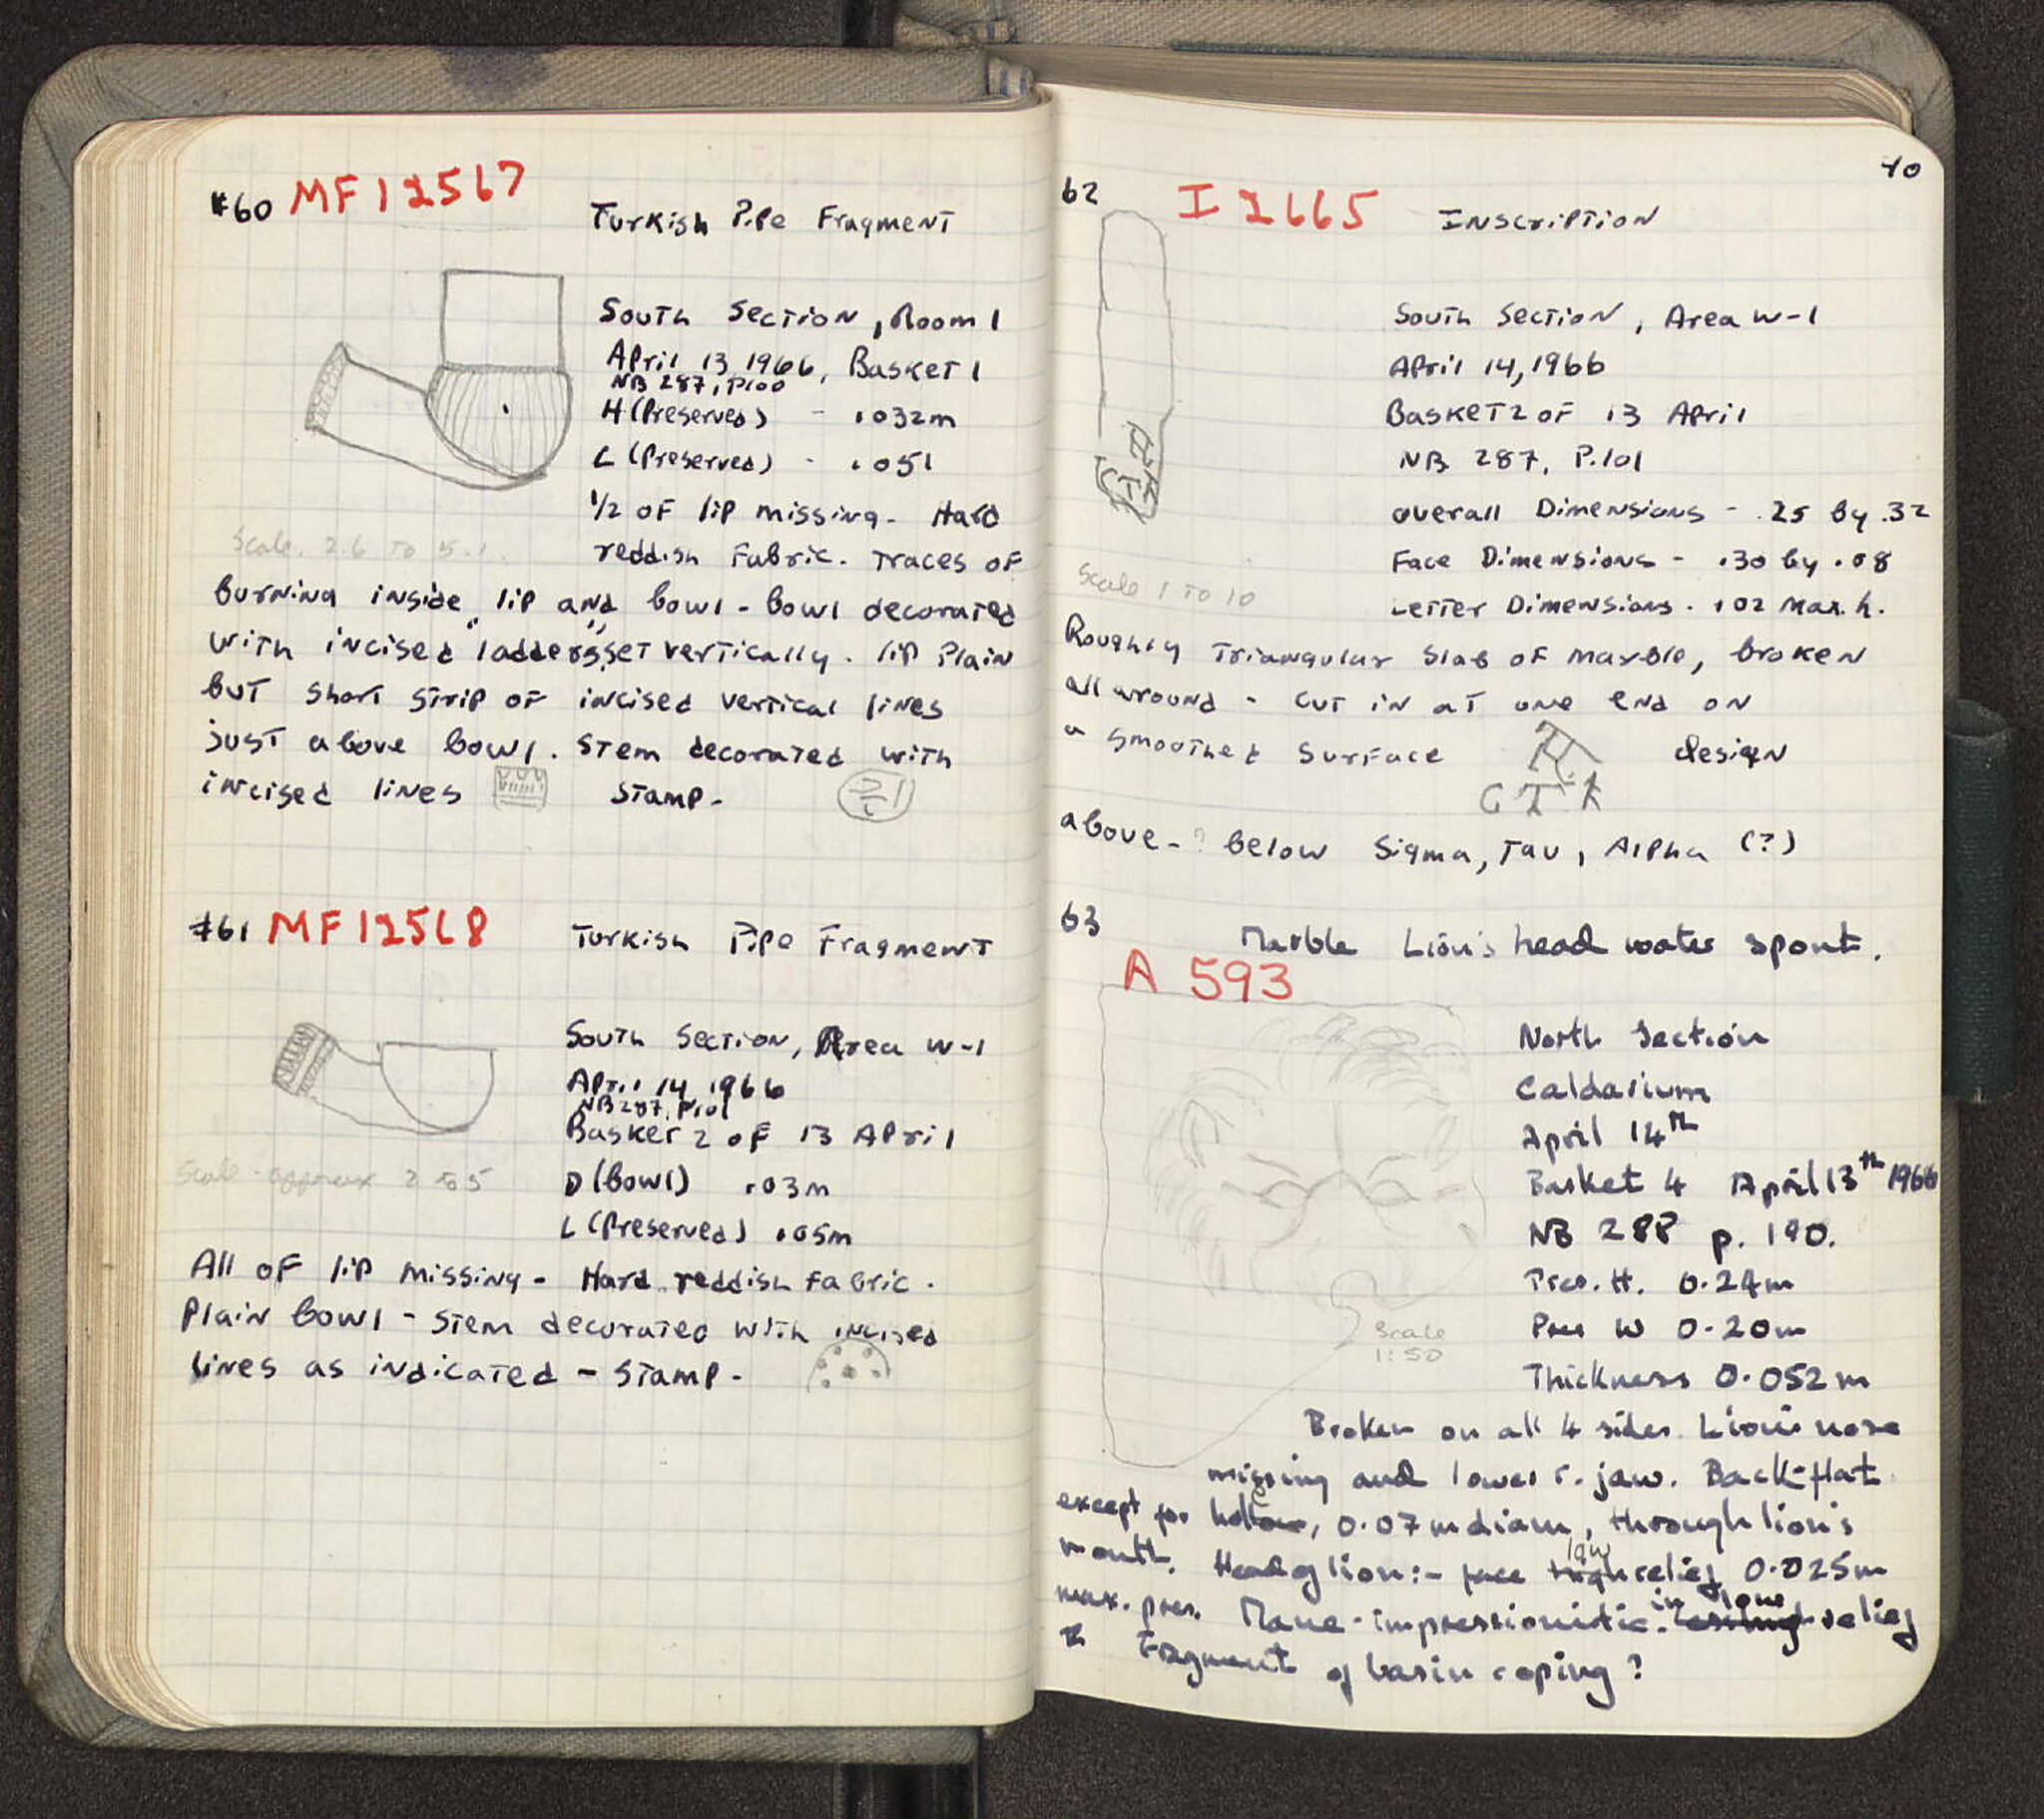 #60 MF 12567
Turkish Pipe Fragment
South Section, Room 1
April 13 1966, Basket 1
NB 287, P100
H (Preserved) - .032m
L (Preserved) - .051
1/2 of lip missing - Hard
Scale. 2.6 to 5.1.
reddish Fabric. Traces of
burning inside lip and bowl - bowl decorated
with incised "ladders" set vertically. lip Plain
but short strip of incised vertical lines
just above bowl. Stem decorated with
incised lines stamp -
#61 MF 12568
Turkish Pipe Fragment
South Section, Area W-1
April 14 1966
NB 287, P101
Basket 2 of 13 April
Scale - approx 2 to 5
D (bowl) .03m
L (Preserved) .05m
All of lip missing - Hard reddish fabric.
Plain bowl - stem decorated with incised
lines as indicated - stamp -
40
62 I 2665 Inscription
South Section, Area W-1
April 14, 1966
Basket 2 of 13 April
NB 287, P.101
overall Dimensions - .25 by .32
Face Dimensions - .30 by .08
Scale 1 to 10
Letter Dimensions. .02 Max. h.
Roughly Triangular Slab of marble, broken
all around - cut in at one end on
a smoothed surface design
above - ? below Sigma, Tau, Alpha (?)
63
Marble Lion's head water spout.
A 593
North Section
Caldarium
April 14th
Basket 4 April 13th 1966
NB 288 p. 190.
Pres. H. 0.24m
Pres W 0.20m
Scale
1:50
Thickness 0.052m
Broken on all 4 sides. Lion's nose
missing and lower r. jaw. Back - flat
except for hollow, 0.07m diam, through lion's
mouth. Head of lion:- face high low relief 0.025m
max. pres. Mane - impressionistic. in low relief
Fragment of basin coping?